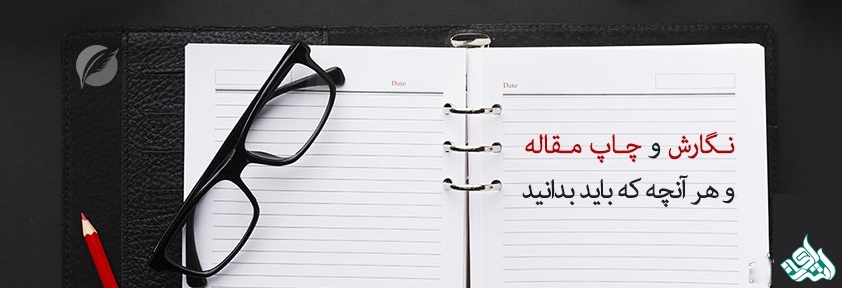 Date
Date
نگارش و چاپ مقاله
و هر آنچه که باید بدانید